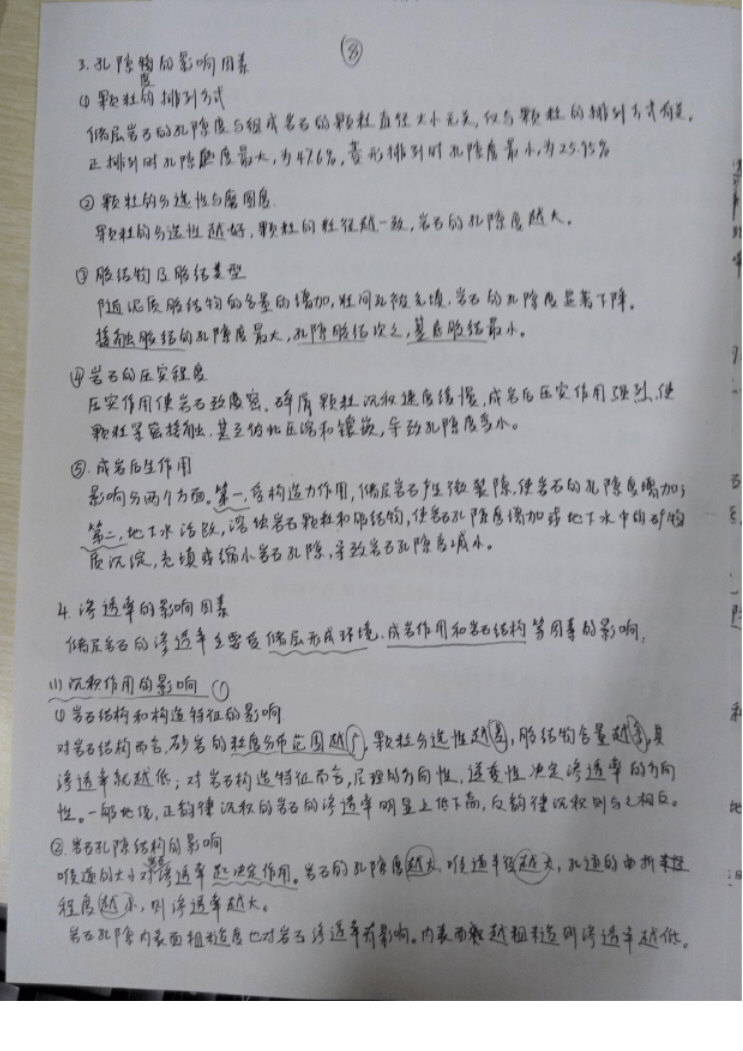 ⑧
3. 孔隙度的影响因素
① 颗粒的排列方式
储层岩石的孔隙度与组成岩石的颗粒直径大小无关,仅与颗粒的排列方式有关。
正排列时孔隙度最大,为47.6%,菱形排列时孔隙度最小,为25.95%
② 颗粒的分选性与磨圆度.
颗粒的分选性越好,颗粒的粒径越一致,岩石的孔隙度越大。
③ 胶结物及胶结类型
随泥质胶结物的含量的增加,粒间孔被充填,岩石的孔隙度显著下降。
接触胶结的孔隙度最大,孔隙胶结次之,基底胶结最小。
④ 岩石的压实程度
压实作用使岩石致密。碎屑颗粒沉积速度缓慢,成岩后压实作用强烈,使
颗粒紧密接触,甚至彼此压溶和镶嵌,导致孔隙度变小。
⑤. 成岩后生作用
影响分两个方面。第一,受构造力作用,储层岩石产生微裂隙,使岩石的孔隙度增加;
第二,地下水活跃,溶蚀岩石颗粒和胶结物,使岩石孔隙度增加或地下水中的矿物
质沉淀,充填或缩小岩石孔隙,导致岩石孔隙度减小。
4. 渗透率的影响因素
储层岩石的渗透率主要受储层形成环境.成岩作用和岩石结构等因素的影响,
(1) 沉积作用的影响 ①
① 岩石结构和构造特征的影响
对岩石结构而言,砂岩的粒度分布范围越广,颗粒分选性越差,胶结物含量越高,其
渗透率就越低;对岩石构造特征而言,层理的方向性,递变性决定渗透率的方向
性。一般地说,正韵律沉积的岩石的渗透率明显上低下高,反韵律沉积则与之相反。
②. 岩石孔隙结构的影响
喉道的大小对岩石渗透率起决定作用。岩石的孔隙度越大,喉道半径越大,孔道的曲折
程度越小,则渗透率越大。
岩石孔隙内表面粗糙度也对岩石渗透率有影响。内表面越粗糙则渗透率越低。